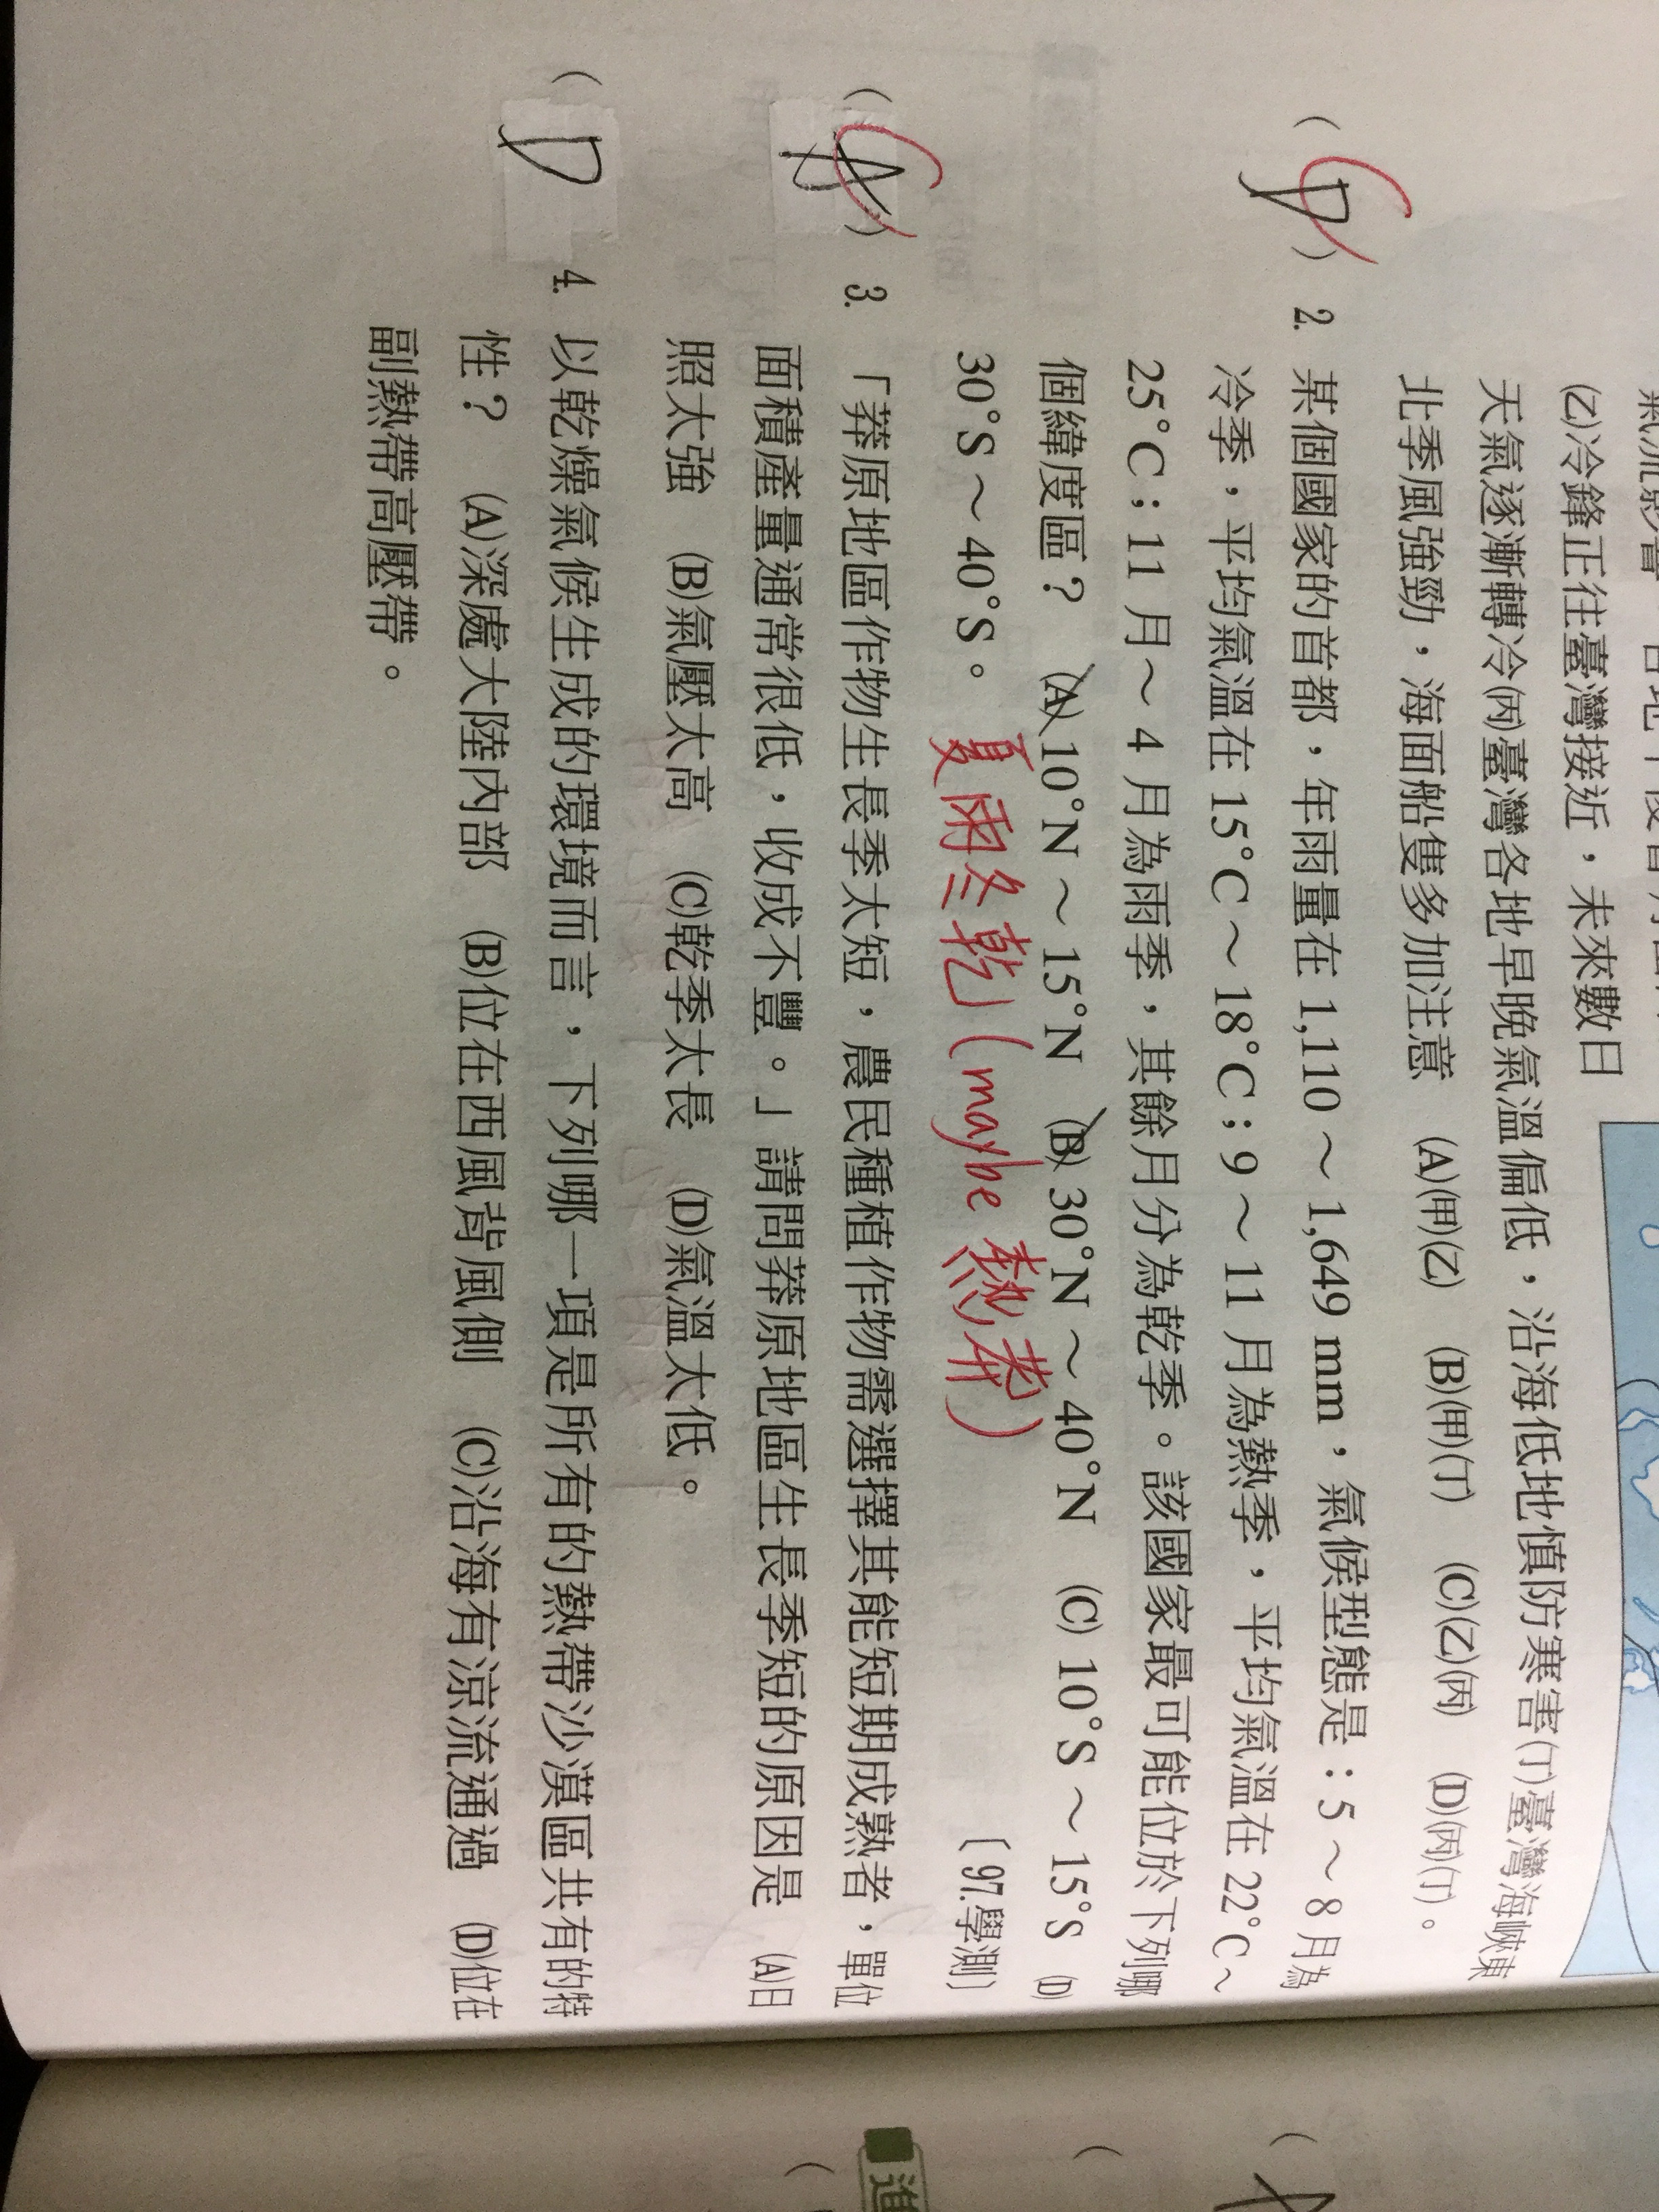 (乙)冷鋒正往臺灣接近，未來數日
天氣逐漸轉冷(丙)臺灣各地早晚氣溫偏低，沿海低地慎防寒害(丁)臺灣海峽東
北季風強勁，海面船隻多加注意 (A)(甲)(乙) (B)(甲)(丁) (C)(乙)(丙) (D)(丙)(丁)。
( D C ) 2. 某個國家的首都，年雨量在 1,110～1,649 mm，氣候型態是：5～8 月為
冷季，平均氣溫在 15°C～18°C；9～11 月為熱季，平均氣溫在 22°C～
25°C；11 月～4 月為雨季，其餘月分為乾季。該國家最可能位於下列哪
個緯度區？ (A) 10°N～15°N (B) 30°N～40°N (C) 10°S～15°S (D)
30°S～40°S。 〔97.學測〕
夏雨冬乾 (maybe 熱莽)
( A C ) 3. 「莽原地區作物生長季太短，農民種植作物需選擇其能短期成熟者，單位
面積產量通常很低，收成不豐。」請問莽原地區生長季短的原因是 (A)日
照太強 (B)氣壓太高 (C)乾季太長 (D)氣溫太低。
( D 4. 以乾燥氣候生成的環境而言，下列哪一項是所有的熱帶沙漠區共有的特
性？ (A)深處大陸內部 (B)位在西風背風側 (C)沿海有涼流通過 (D)位在
副熱帶高壓帶。
進